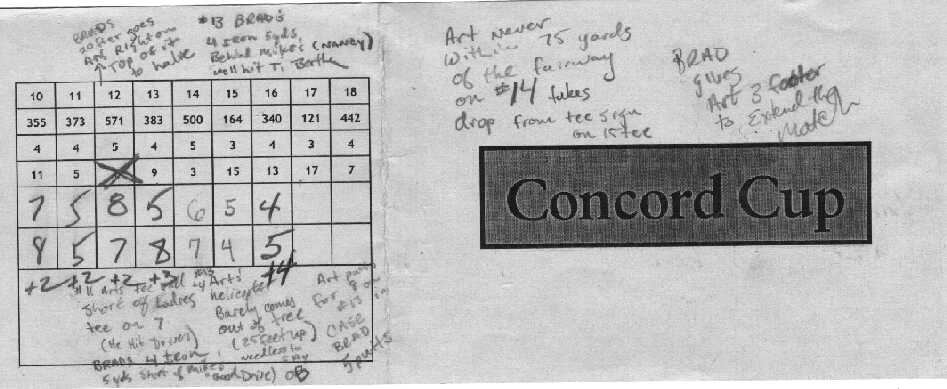 BRADS
goes
And Right on
↑ TOP of it
to halve
#13 BRAD'S
4 Iron 5yds
Behind Mike's (NANCY)
well hit Ti Bertha
10 11 12 13 14 15 16 17 18
355 373 571 383 500 164 340 121 442
4 4 5 4 5 3 4 3 4
11 5 9 3 15 13 17 7
7 5 8 5 6 5 4
8 5 7 8 7 4 5
+2 +2 +2 +3 +4
arts tee
short of Ladies
tee on 7
(He Hit Driver)
BRADS 4 Iron
5yds short of mikes
"Good Drive)
Arts'
helicopter
Barely comes
out of tree
(25 feet up)
needless to say
OB
Art putts
for 8 on
#13 in
CASE
BRAD
5 putts
Art never
within 75 yards
of the fairway
on #14 takes
drop from tee sign
on 15 tee
BRAD
gives
Art 3 footer
to Extend the
Match
Concord Cup